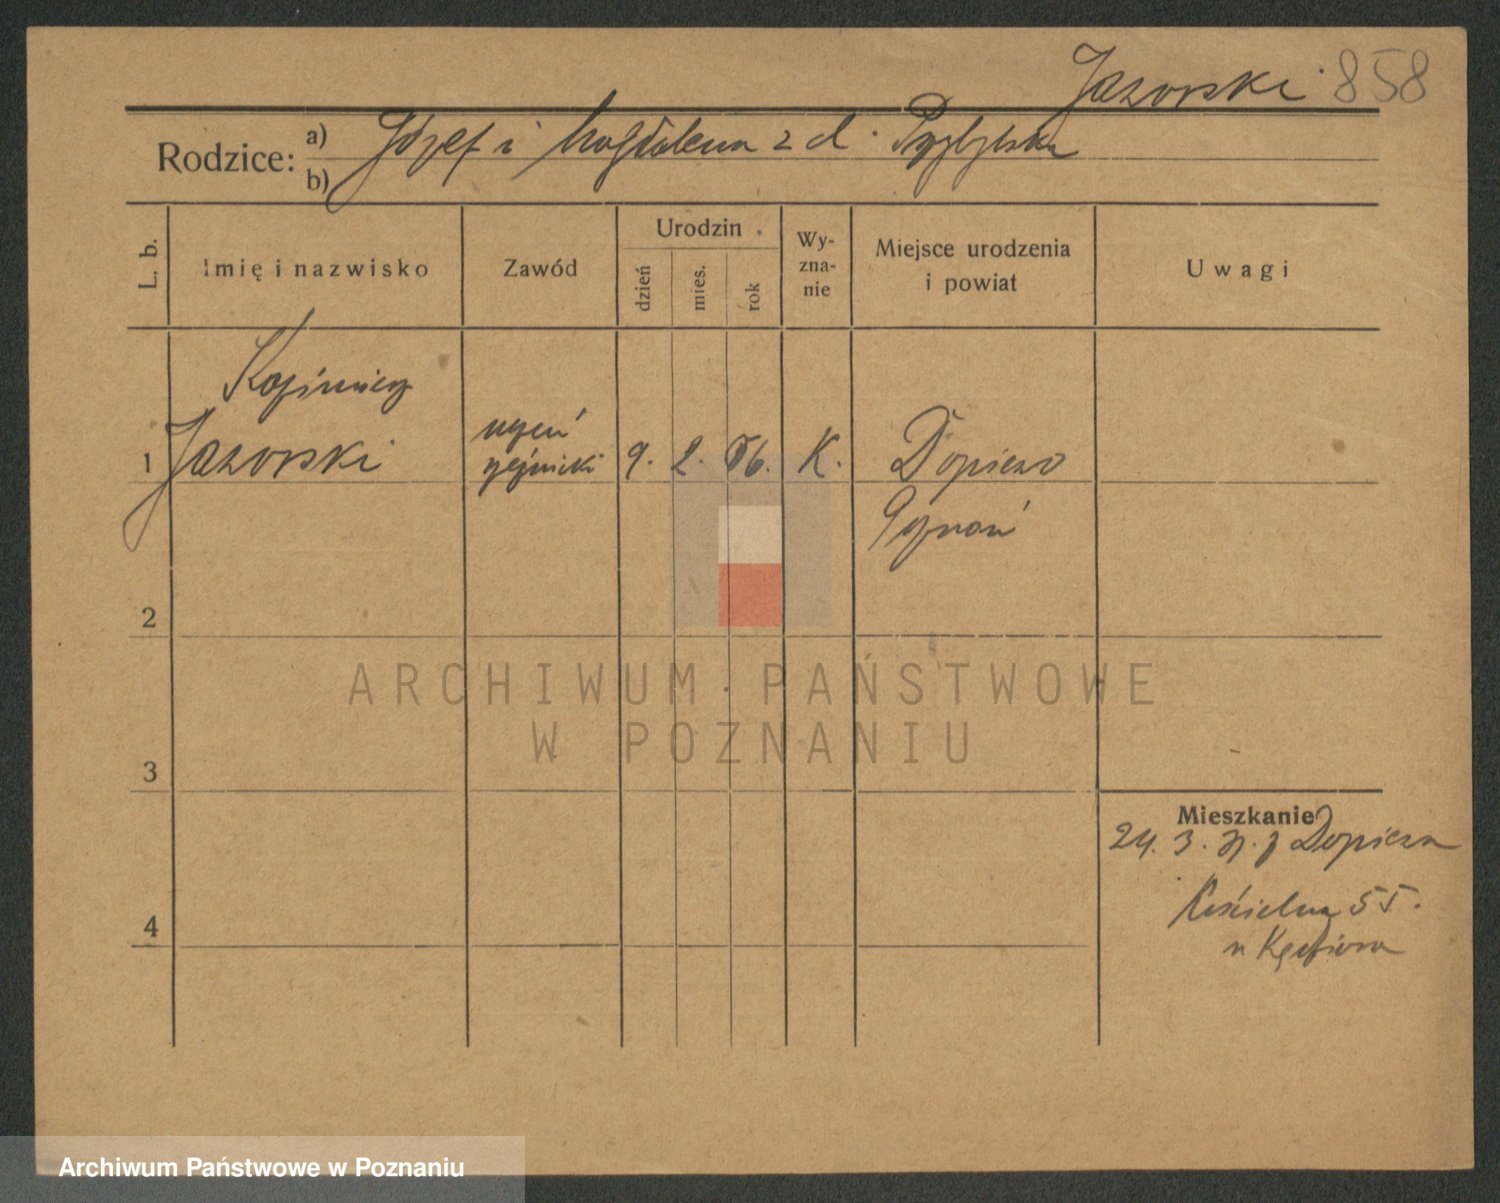 Jazorski 858
Rodzice: a) Józef i Magdalena z d. Przybylska
b)
L. b. Imię i nazwisko Zawód Urodzin dzień mies. rok Wyzna-nie Miejsce urodzenia i powiat Uwagi
Kazimierz
1 Jazorski uczeń rzeźnicki 9. 2. 06. K. Dopiewo
Poznań
2
3
4
Mieszkanie
24. 3. z Dopiewa
Kościelna 55.
u
ARCHIWUM PAŃSTWOWE
W POZNANIU
Archiwum Państwowe w Poznaniu